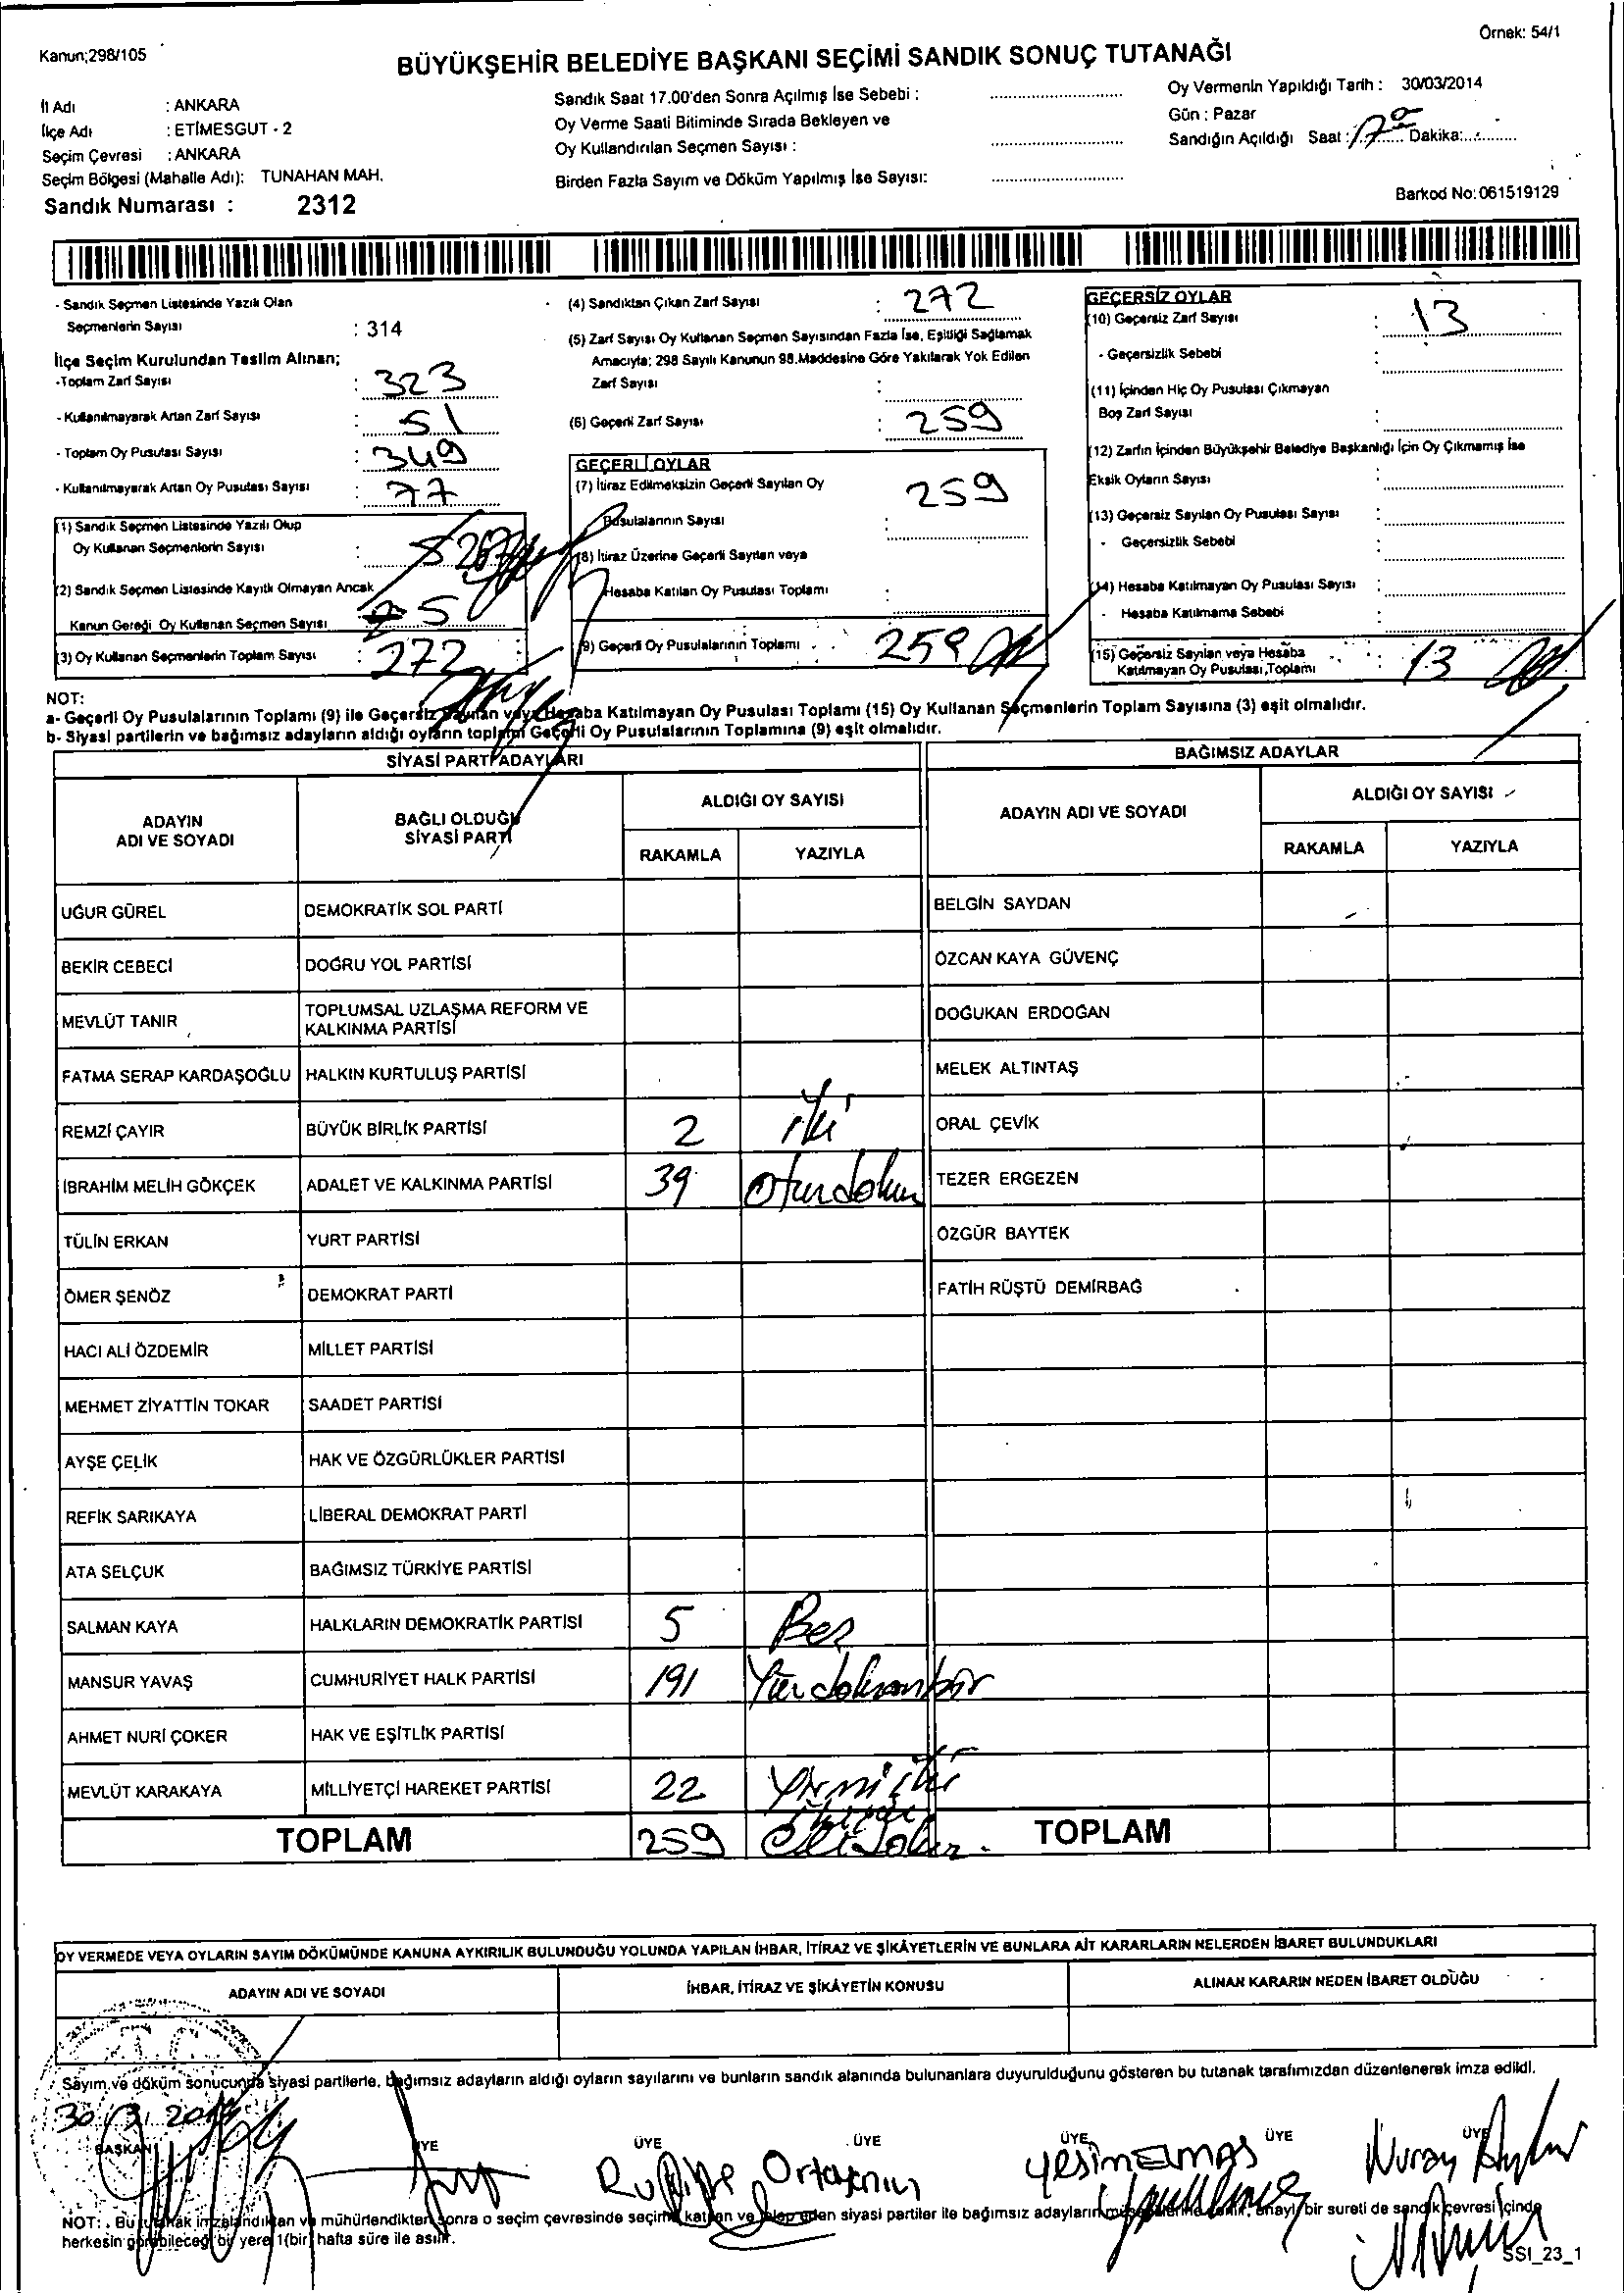 Kanun;298/105
Örnek: 54/1
BÜYÜKŞEHİR BELEDİYE BAŞKANI SEÇİMİ SANDIK SONUÇ TUTANAĞI
İl Adı : ANKARA
İlçe Adı : ETİMESGUT - 2
Seçim Çevresi : ANKARA
Seçim Bölgesi (Mahalle Adı): TUNAHAN MAH.
Sandık Numarası : 2312
Sandık Saat 17.00'den Sonra Açılmış İse Sebebi :
Oy Verme Saati Bitiminde Sırada Bekleyen ve
Oy Kullandırılan Seçmen Sayısı :
Birden Fazla Sayım ve Döküm Yapılmış İse Sayısı:
Oy Vermenin Yapıldığı Tarih : 30/03/2014
Gün : Pazar
Sandığın Açıldığı Saat : 17 00 Dakika:
Barkod No:061519129
- Sandık Seçmen Listesinde Yazılı Olan
Seçmenlerin Sayısı : 314
İlçe Seçim Kurulundan Teslim Alınan;
-Toplam Zarf Sayısı : 323
- Kullanılmayarak Artan Zarf Sayısı : 51
- Toplam Oy Pusulası Sayısı : 349
- Kullanılmayarak Artan Oy Pusulası Sayısı : 77
(1) Sandık Seçmen Listesinde Yazılı Olup
Oy Kullanan Seçmenlerin Sayısı : 267
(2) Sandık Seçmen Listesinde Kayıtlı Olmayan Ancak
Kanun Gereği Oy Kullanan Seçmen Sayısı 5
(3) Oy Kullanan Seçmenlerin Toplam Sayısı : 272
(4) Sandıktan Çıkan Zarf Sayısı : 272
(5) Zarf Sayısı Oy Kullanan Seçmen Sayısından Fazla İse, Eşitliği Sağlamak
Amacıyla; 298 Sayılı Kanunun 98.Maddesine Göre Yakılarak Yok Edilen
Zarf Sayısı :
(6) Geçerli Zarf Sayısı : 259
GEÇERLİ OYLAR
(7) İtiraz Edilmeksizin Geçerli Sayılan Oy
Pusulalarının Sayısı : 259
(8) İtiraz Üzerine Geçerli Sayılan veya
Hesaba Katılan Oy Pusulası Toplamı :
(9) Geçerli Oy Pusulalarının Toplamı 259
GEÇERSİZ OYLAR
(10) Geçersiz Zarf Sayısı : 13
- Geçersizlik Sebebi :
(11) İçinden Hiç Oy Pusulası Çıkmayan
Boş Zarf Sayısı :
(12) Zarfın İçinden Büyükşehir Belediye Başkanlığı İçin Oy Çıkmamış İse
Eksik Oyların Sayısı :
(13) Geçersiz Sayılan Oy Pusulası Sayısı :
- Geçersizlik Sebebi :
(14) Hesaba Katılmayan Oy Pusulası Sayısı :
- Hesaba Katılmama Sebebi :
(15) Geçersiz Sayılan veya Hesaba
Katılmayan Oy Pusulası Toplamı : 13
NOT:
a- Geçerli Oy Pusulalarının Toplamı (9) ile Geçersiz Sayılan veya Hesaba Katılmayan Oy Pusulası Toplamı (15) Oy Kullanan Seçmenlerin Toplam Sayısına (3) eşit olmalıdır.
b- Siyasi partilerin ve bağımsız adayların aldığı oyların toplamı Geçerli Oy Pusulalarının Toplamına (9) eşit olmalıdır.
SİYASİ PARTİ ADAYLARI
ADAYIN ADI VE SOYADI
BAĞLI OLDUĞU SİYASİ PARTİ
ALDIĞI OY SAYISI
RAKAMLA YAZIYLA
UĞUR GÜREL DEMOKRATİK SOL PARTİ
BEKİR CEBECİ DOĞRU YOL PARTİSİ
MEVLÜT TANIR TOPLUMSAL UZLAŞMA REFORM VE
KALKINMA PARTİSİ
FATMA SERAP KARDAŞOĞLU HALKIN KURTULUŞ PARTİSİ
REMZİ ÇAYIR BÜYÜK BİRLİK PARTİSİ 2 iki
İBRAHİM MELİH GÖKÇEK ADALET VE KALKINMA PARTİSİ 39 Otuzdokuz
TÜLİN ERKAN YURT PARTİSİ
ÖMER ŞENÖZ DEMOKRAT PARTİ
HACI ALİ ÖZDEMİR MİLLET PARTİSİ
MEHMET ZİYATTİN TOKAR SAADET PARTİSİ
AYŞE ÇELİK HAK VE ÖZGÜRLÜKLER PARTİSİ
REFİK SARIKAYA LİBERAL DEMOKRAT PARTİ
ATA SELÇUK BAĞIMSIZ TÜRKİYE PARTİSİ
SALMAN KAYA HALKLARIN DEMOKRATİK PARTİSİ 5 Beş
MANSUR YAVAŞ CUMHURİYET HALK PARTİSİ 191 Yüzdoksanbir
AHMET NURİ ÇOKER HAK VE EŞİTLİK PARTİSİ
MEVLÜT KARAKAYA MİLLİYETÇİ HAREKET PARTİSİ 22 Yirmiiki
TOPLAM 259 ikiyüz
Ellidokuz.
BAĞIMSIZ ADAYLAR
ADAYIN ADI VE SOYADI
ALDIĞI OY SAYISI
RAKAMLA YAZIYLA
BELGİN SAYDAN
ÖZCAN KAYA GÜVENÇ
DOĞUKAN ERDOĞAN
MELEK ALTINTAŞ
ORAL ÇEVİK
TEZER ERGEZEN
ÖZGÜR BAYTEK
FATİH RÜŞTÜ DEMİRBAĞ
TOPLAM
OY VERMEDE VEYA OYLARIN SAYIM DÖKÜMÜNDE KANUNA AYKIRILIK BULUNDUĞU YOLUNDA YAPILAN İHBAR, İTİRAZ VE ŞİKÂYETLERİN VE BUNLARA AİT KARARLARIN NELERDEN İBARET BULUNDUKLARI
ADAYIN ADI VE SOYADI İHBAR, İTİRAZ VE ŞİKÂYETİN KONUSU ALINAN KARARIN NEDEN İBARET OLDUĞU
Sayım ve döküm sonucunda siyasi partilerle, bağımsız adayların aldığı oyların sayılarını ve bunların sandık alanında bulunanlara duyurulduğunu gösteren bu tutanak tarafımızdan düzenlenerek imza edildi.
30/3/2014
BAŞKAN ÜYE ÜYE ÜYE ÜYE ÜYE ÜYE
NOT: Bu tutanak imzalandıktan ve mühürlendikten sonra o seçim çevresinde seçime katılan ve talep eden siyasi partiler ile bağımsız adayların müşahitlerine verilir, onaylı bir sureti de sandık çevresi içinde
herkesin görebileceği bir yere 1(bir) hafta süre ile asılır.
SSI_23_1